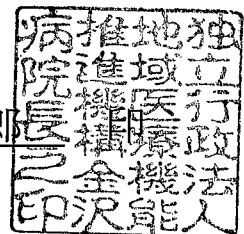 独立行政法人
地域医療機能
推進機構金沢
病院長之印
印